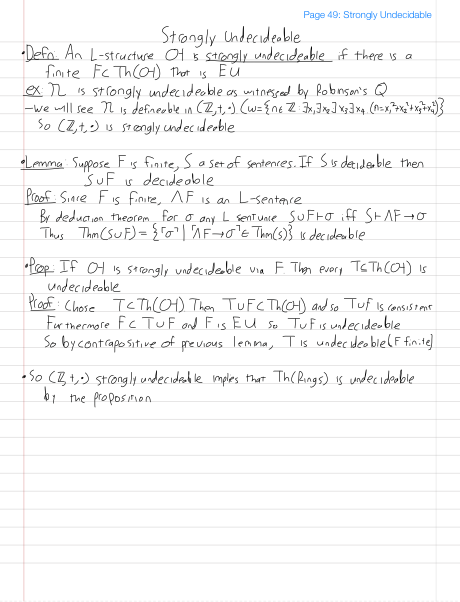 Page 49: Strongly Undecidable
Strongly Undecideable
• Defn: An L-structure 𝔄 is strongly undecideable if there is a
finite F⊂Th(𝔄) that is EU
ex: 𝔑 is strongly undecideable as witnessed by Robinson's Q
- we will see 𝔑 is defineable in (ℤ,+,·) (ω={n∈ℤ: ∃x₁∃x₂∃x₃∃x₄ (n=x₁²+x₂²+x₃²+x₄²)}
So (ℤ,+,·) is strongly undecideable
• Lemma: Suppose F is finite, S a set of sentences. If S is decideable then
S∪F is decideable
Proof: Since F is finite, ∧F is an L-sentence
By deduction theorem for σ any L sentence S∪F⊢σ iff S⊢∧F→σ
Thus Thm(S∪F) = {⌜σ⌝ | ⌜∧F→σ⌝ ∈ Thm(S)} is decideable
• Prop: If 𝔄 is strongly undecideable via F. Then every T⊆Th(𝔄) is
undecideable
Proof: Chose T⊂Th(𝔄) Then T∪F⊂Th(𝔄) and so T∪F is consistent
Furthermore F⊂T∪F and F is EU so T∪F is undecideable
So by contrapositive of previous lemma, T is undecideable (F finite)
• So (ℤ,+,·) strongly undecideable implies that Th(Rings) is undecideable
by the proposition